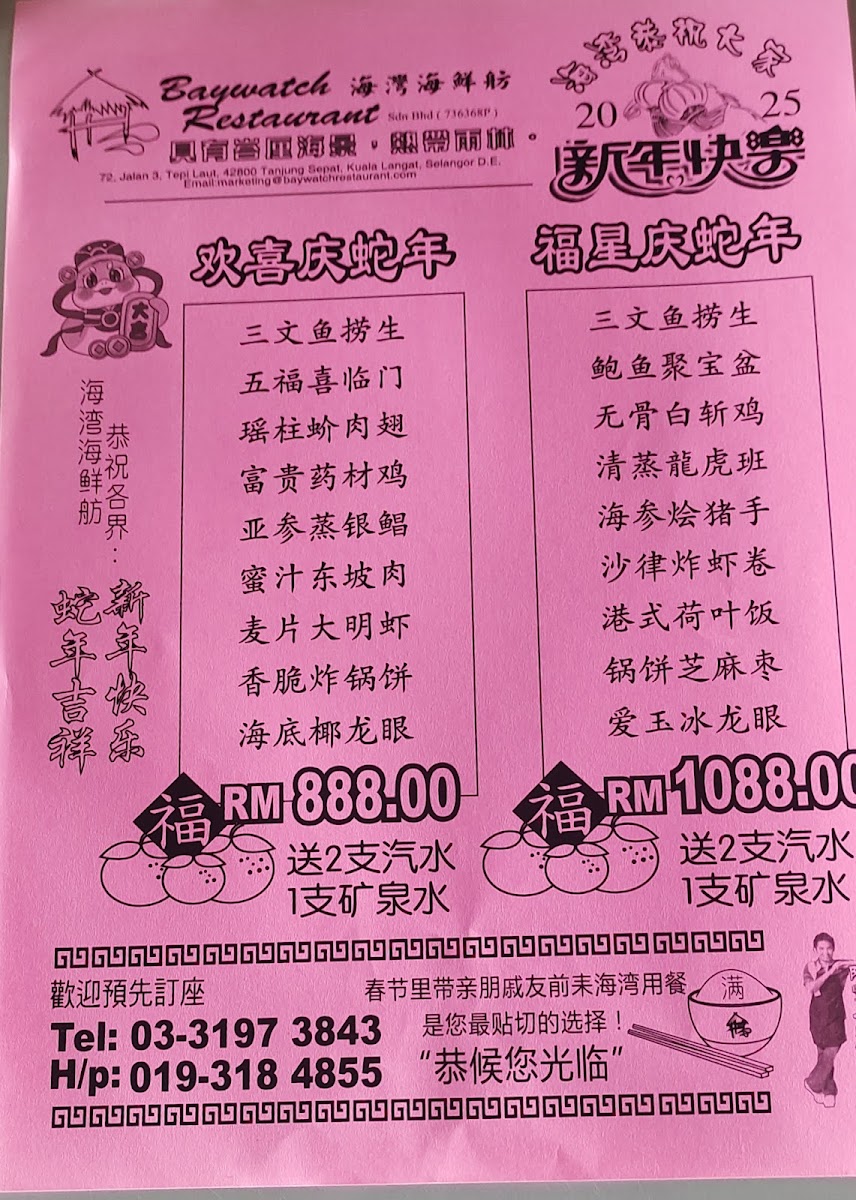 Baywatch 海灣海鮮舫
Restaurant Sdn Bhd ( 736368P )
具有峇厘海景，熱帶雨林。
72, Jalan 3, Tepi Laut, 42800 Tanjung Sepat, Kuala Langat, Selangor D.E.
Email:marketing@baywatchrestaurant.com
海灣恭祝大家
2025
新年快樂
大吉
海湾海鲜舫
恭祝各界：
新年快乐
蛇年吉祥
欢喜庆蛇年
三文鱼捞生
五福喜临门
瑶柱蚧肉翅
富贵药材鸡
亚参蒸银鲳
蜜汁东坡肉
麦片大明虾
香脆炸锅饼
海底椰龙眼
福
RM 888.00
送2支汽水
1支矿泉水
福星庆蛇年
三文鱼捞生
鲍鱼聚宝盆
无骨白斩鸡
清蒸龍虎班
海参烩猪手
沙律炸虾卷
港式荷叶饭
锅饼芝麻枣
爱玉冰龙眼
福
RM 1088.00
送2支汽水
1支矿泉水
歡迎預先訂座
Tel: 03-3197 3843
H/p: 019-318 4855
春节里带亲朋戚友前来海湾用餐
是您最贴切的选择！
“恭候您光临”
满